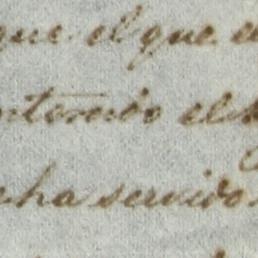 que el que e
ntenido el
ha servido